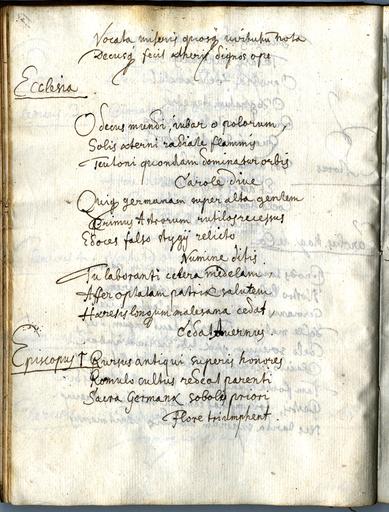 Vocata miseris quosq virtutu nota
Decusq fecit aetheris dignos ope
Ecclesia
O decus mundi, iubar o polorum,
Solis aeterni radiate flammis
Teutoni quondam dominator orbis
Carole dive
Quiq germanam super alta gentem
Primus Astrorum rutilos recessus
Edoces falso stygij relicto
Numine ditis.
Tu laboranti citera medelam
Affer optatam patriae salutem
Haeresis longum malesana cedat
Cedat Avernus
Episcopus Rursus antiqui superis honores
Romulo cultus redeat parenti
Sacra Germanae soboles priori
Flore triumphent.